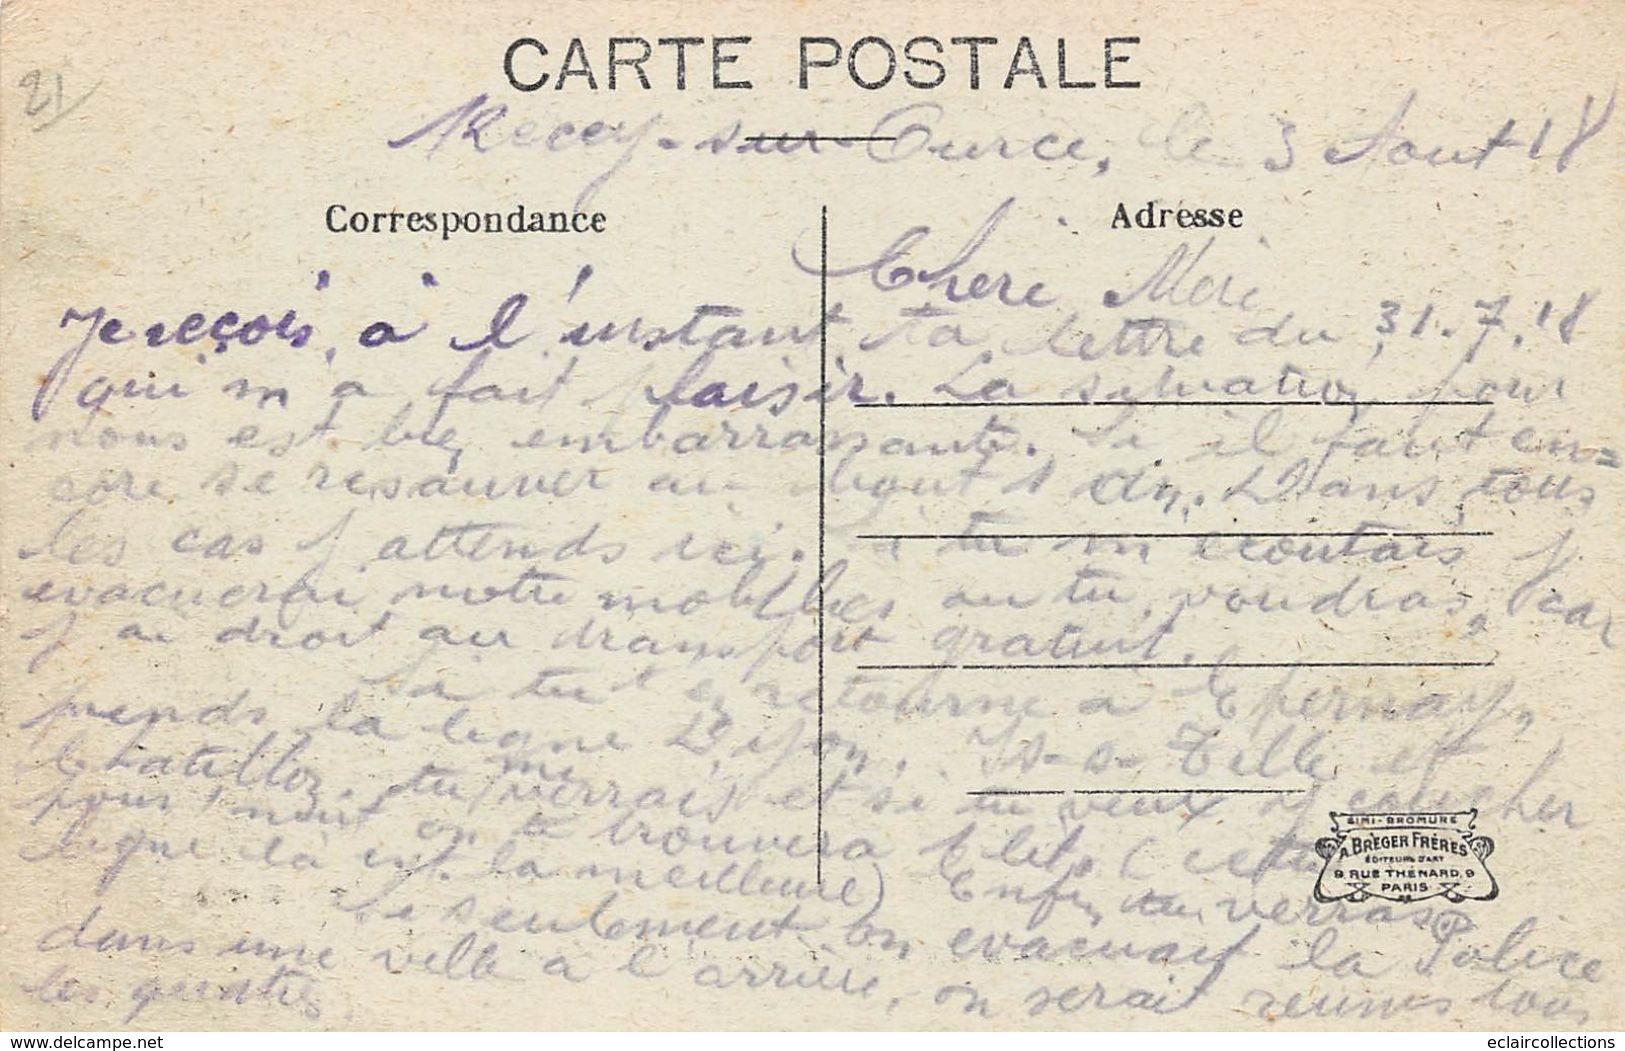 21
CARTE POSTALE
Recey-sur-Ource, le 3 Aout 18
Correspondance
Adresse
Chere Mere
Je reçois à l'instant ta lettre du 31.7.18
qui m'a fait plaisir. La situation pour
nous est bien embarrassante. Si il faut en=
core se resauver au bout 1 an. Dans tous
les cas j'attends ici. Si tu m'ecoutais j'
evacuerai notre mobilies ou tu voudras, car
j'ai droit au transport gratuit.
Si tu en retourne a Epernay,
prends la ligne Dijon. Is-s-Tille et
Chatillon. tu me verrais et si tu veux y coucher
pour 1 nuit on te trouvera 1 lit, (cette
ligne là est la meilleure) Enfin tu verras
Si seulement on evacuait la Police
dans une ville à l'arrière, on serait reunis tous
les quatres.
SIMI-BROMURE
A. BREGER FRÈRES
ÉDITEURS D'ART
9, RUE THÉNARD, 9
PARIS
delcampe.net
eclaircollections